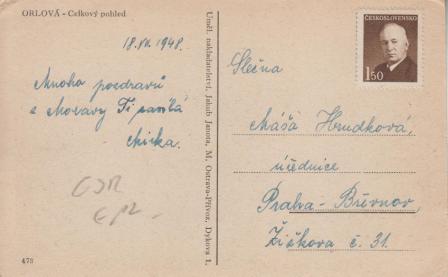 ORLOVÁ - Celkový pohled
18.VII. 1948.
Mnoho pozdravů
z Moravy Ti zasílá
Mirka.
ČSR
473
Uměl. nakladatelství, Jakub Janota, M. Ostrava-Přívoz, Dykova 1.
ČESKOSLOVENSKO
1.50
Slečna
Máša Hrudková,
úřednice
Praha - Břevnov,
Žižkova č. 31.